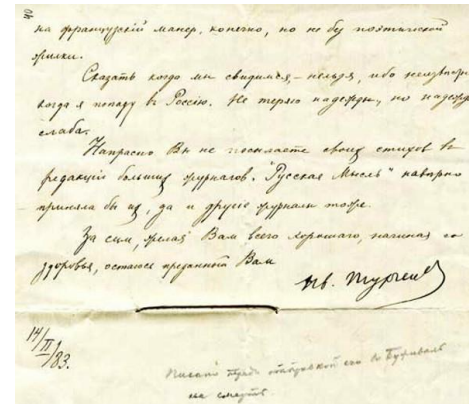 40
на французскій манер, конечно, но не без поэтической
жилки.
Сказать когда мы свидимся, – нельзя, ибо неизвѣстно
когда я попаду въ Россію. Не теряю надежды, но надежда
слаба.
Напрасно Вы не посылаете своих стихов въ
редакціи больших журналов. "Русская Мысль" навѣрно
приняла бы их, да и другіе журналы тоже.
За сим, желая Вам всего хорошаго, начиная со
здоровья, остаюсь преданный Вам
Ив. Тургенев
14/II/83.
на смерть.